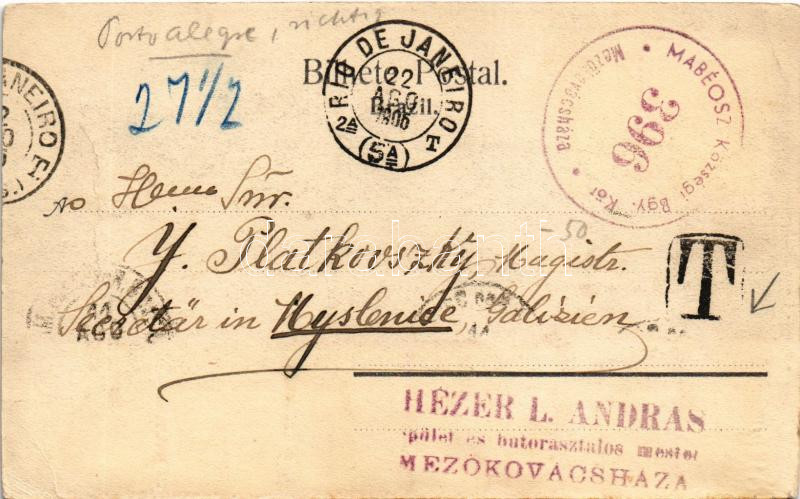 Porto alegre, richtig
27 1/2
Bilhete Postal.
Brazil.
RIO DE JANEIRO
22
AGO
1906
2ª T
(5ª)
ANEIRO
T
MABÉOSZ Községi Bgy. Köt
Mezőkovácsháza
396
Ao Illmo Snr.
Y. Platkovszky, Magistr.
Secretär in Myslenice, Galizien
-50
AGO
T
HÉZER L. ANDRAS
épület és butorasztalos mester
MEZŐKOVÁCSHÁZA